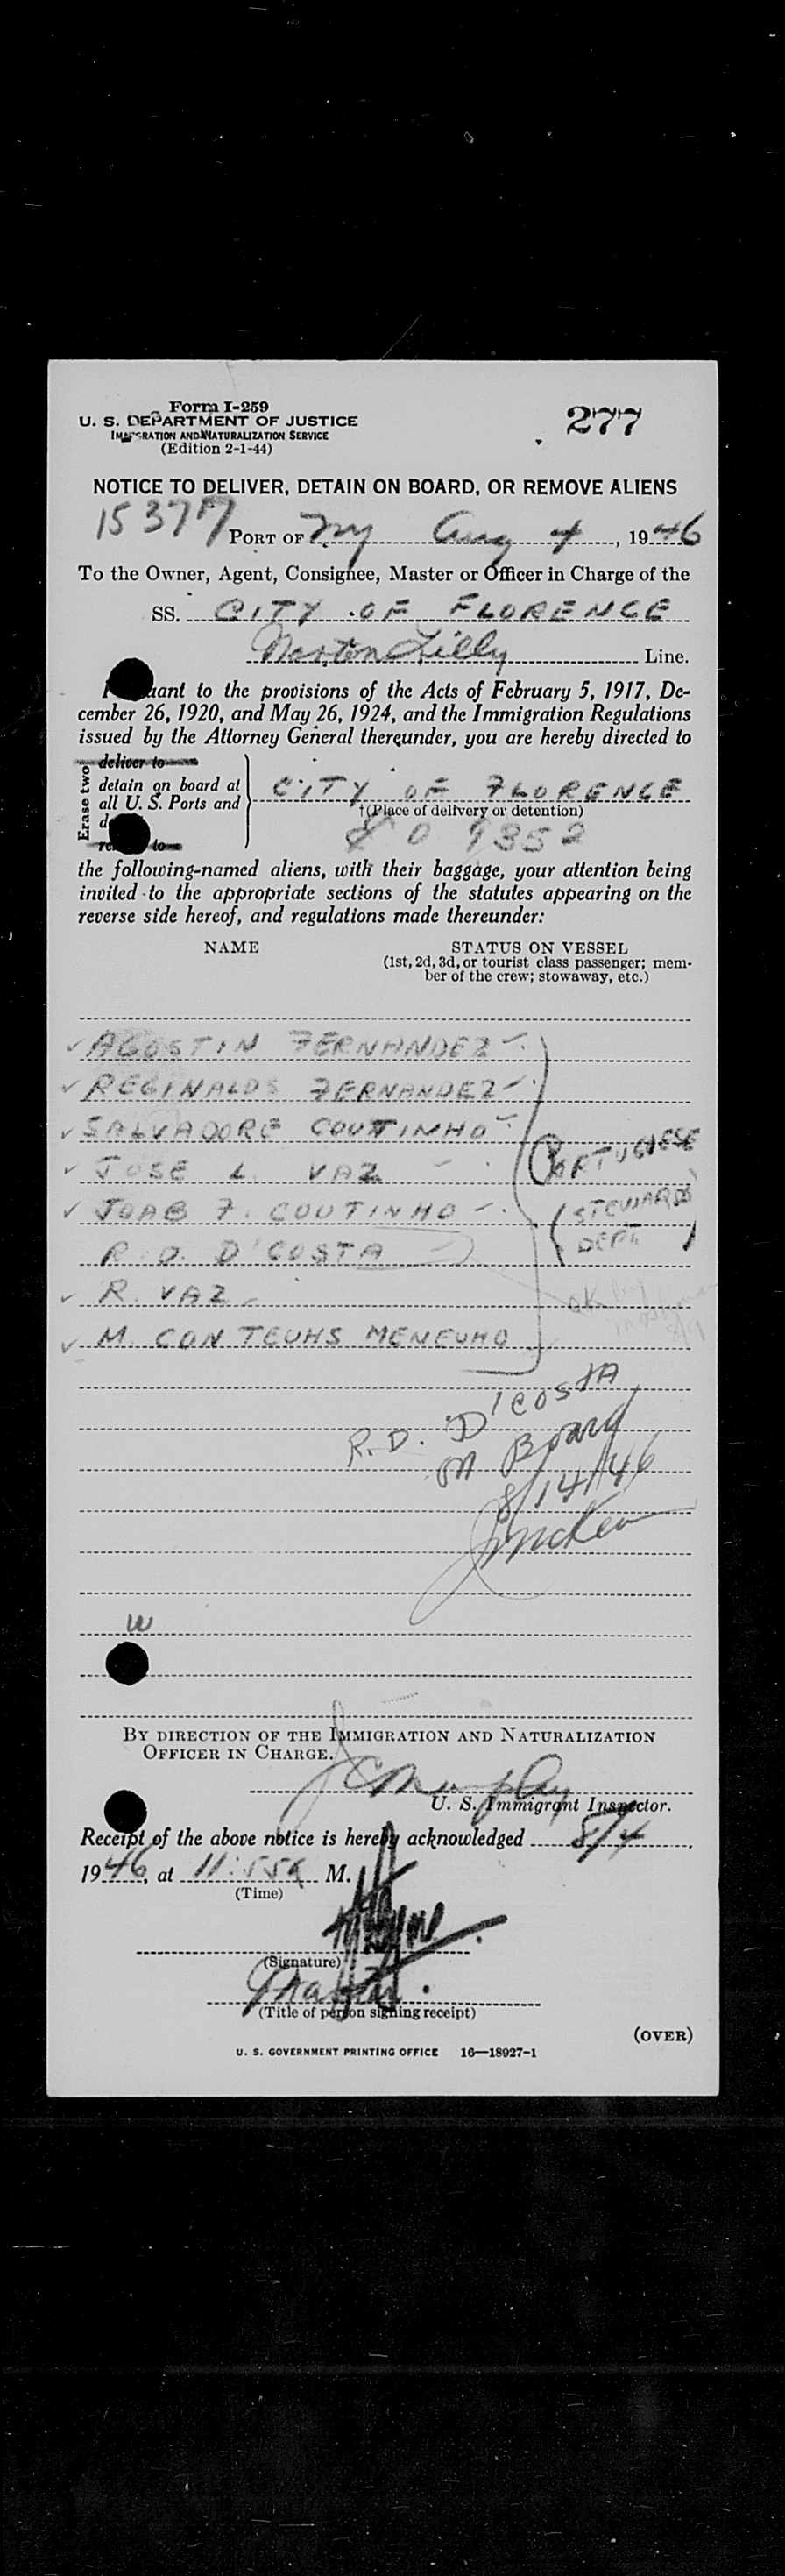 Form I-259
U. S. DEPARTMENT OF JUSTICE
IMMIGRATION AND NATURALIZATION SERVICE
(Edition 2-1-44)
277
NOTICE TO DELIVER, DETAIN ON BOARD, OR REMOVE ALIENS
15377
PORT OF NY Aug 4, 1946
To the Owner, Agent, Consignee, Master or Officer in Charge of the
SS. CITY OF FLORENCE
Norton Lilly Line.
Pursuant to the provisions of the Acts of February 5, 1917, De-
cember 26, 1920, and May 26, 1924, and the Immigration Regulations
issued by the Attorney General thereunder, you are hereby directed to
Erase two
deliver to
detain on board at
all U. S. Ports and
to
CITY OF FLORENCE
†(Place of delivery or detention)
9352
the following-named aliens, with their baggage, your attention being
invited to the appropriate sections of the statutes appearing on the
reverse side hereof, and regulations made thereunder:
NAME STATUS ON VESSEL
(1st, 2d, 3d, or tourist class passenger; mem-
ber of the crew; stowaway, etc.)
✓ AGOSTIN FERNANDEZ -
✓ REGINALDS FERNANDEZ -
✓ SALVADORE COUTINHO -
✓ JOSE L. VAZ -
PORTUGUESE
✓ JOAB F. COUTINHO -
(STEWARDS
DEPT)
R. D. D'COSTA
✓ R. VAZ -
OK by
✓ M CON TEUHS MENEUHO
R. D. D'COSTA
on Board
8/14/46
W
BY DIRECTION OF THE IMMIGRATION AND NATURALIZATION
OFFICER IN CHARGE.
J C Murphy
U. S. Immigrant Inspector.
Receipt of the above notice is hereby acknowledged 8/4,
1946, at 11:55 a M.
(Time)
(Signature)
(Title of person signing receipt)
(OVER)
U. S. GOVERNMENT PRINTING OFFICE 16—18927-1